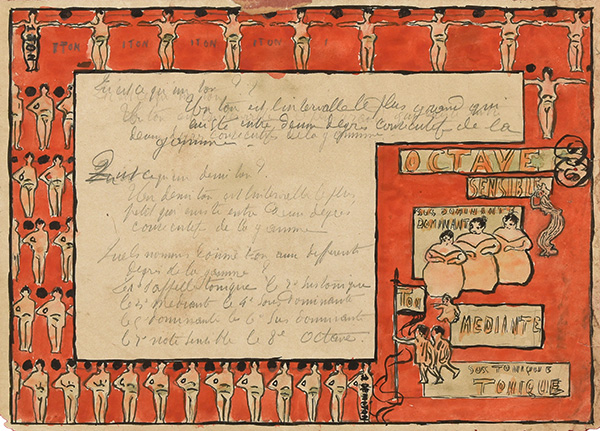 1 TON 1 TON 1 TON 1 TON 1
Qu'est ce qu'un ton ?
Un ton est l'intervalle le plus grand qui
existe entre deux degrés consécutif de la
gamme
Qu'est ce qu'un demi ton ?
Un demi ton est l'intervalle le plus
petit qui existe entre deux degrés
consécutif de la gamme
Quels noms donne t'on aux different
degrés de la gamme ?
Le 1er s'appelle tonique le 2e sus tonique
le 3e mediant le 4e sous dominant
le 5e dominante le 6e sus dominant
le 7e note sensible le 8e Octave.
OCTAVE
SENSIBLE
SUS DOMINANT
DOMINANT
TON
MEDIANTE
SUS TONIQUE
TONIQUE